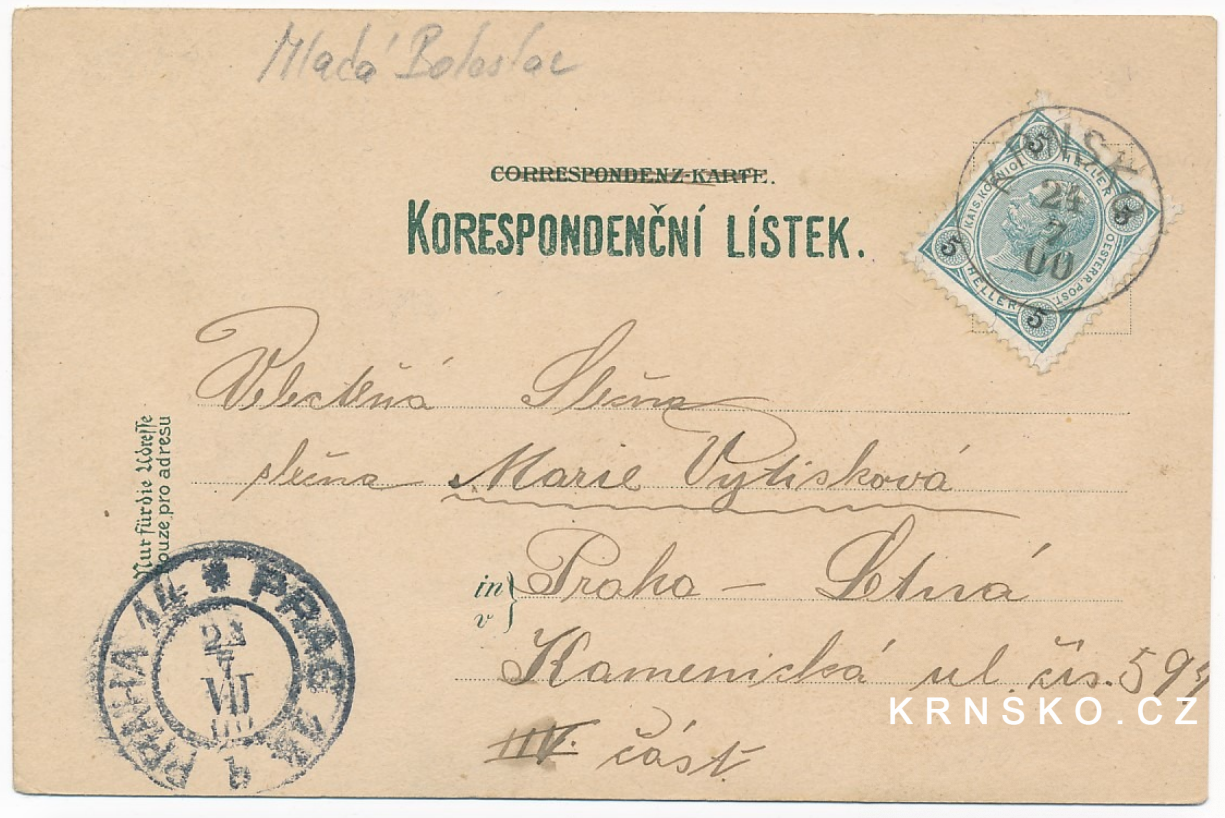 Mladá Boleslav
CORRESPONDENZ-KARTE.
KORESPONDENČNÍ LÍSTEK.
KRNSKO
24
7
00
5 5 5 5
KAIS. KÖNIGL. OESTERR. POST.
HELLER HELLER
Velectěná Slečna
slečna Marie Vytisková
in
v
Praha – Letná
Kamenická ul. čís. 59
IV. část
Nur für die Adresse
Pouze pro adresu
PRAHA 14 * PRAG 14
VII
b
KRNSKO.CZ